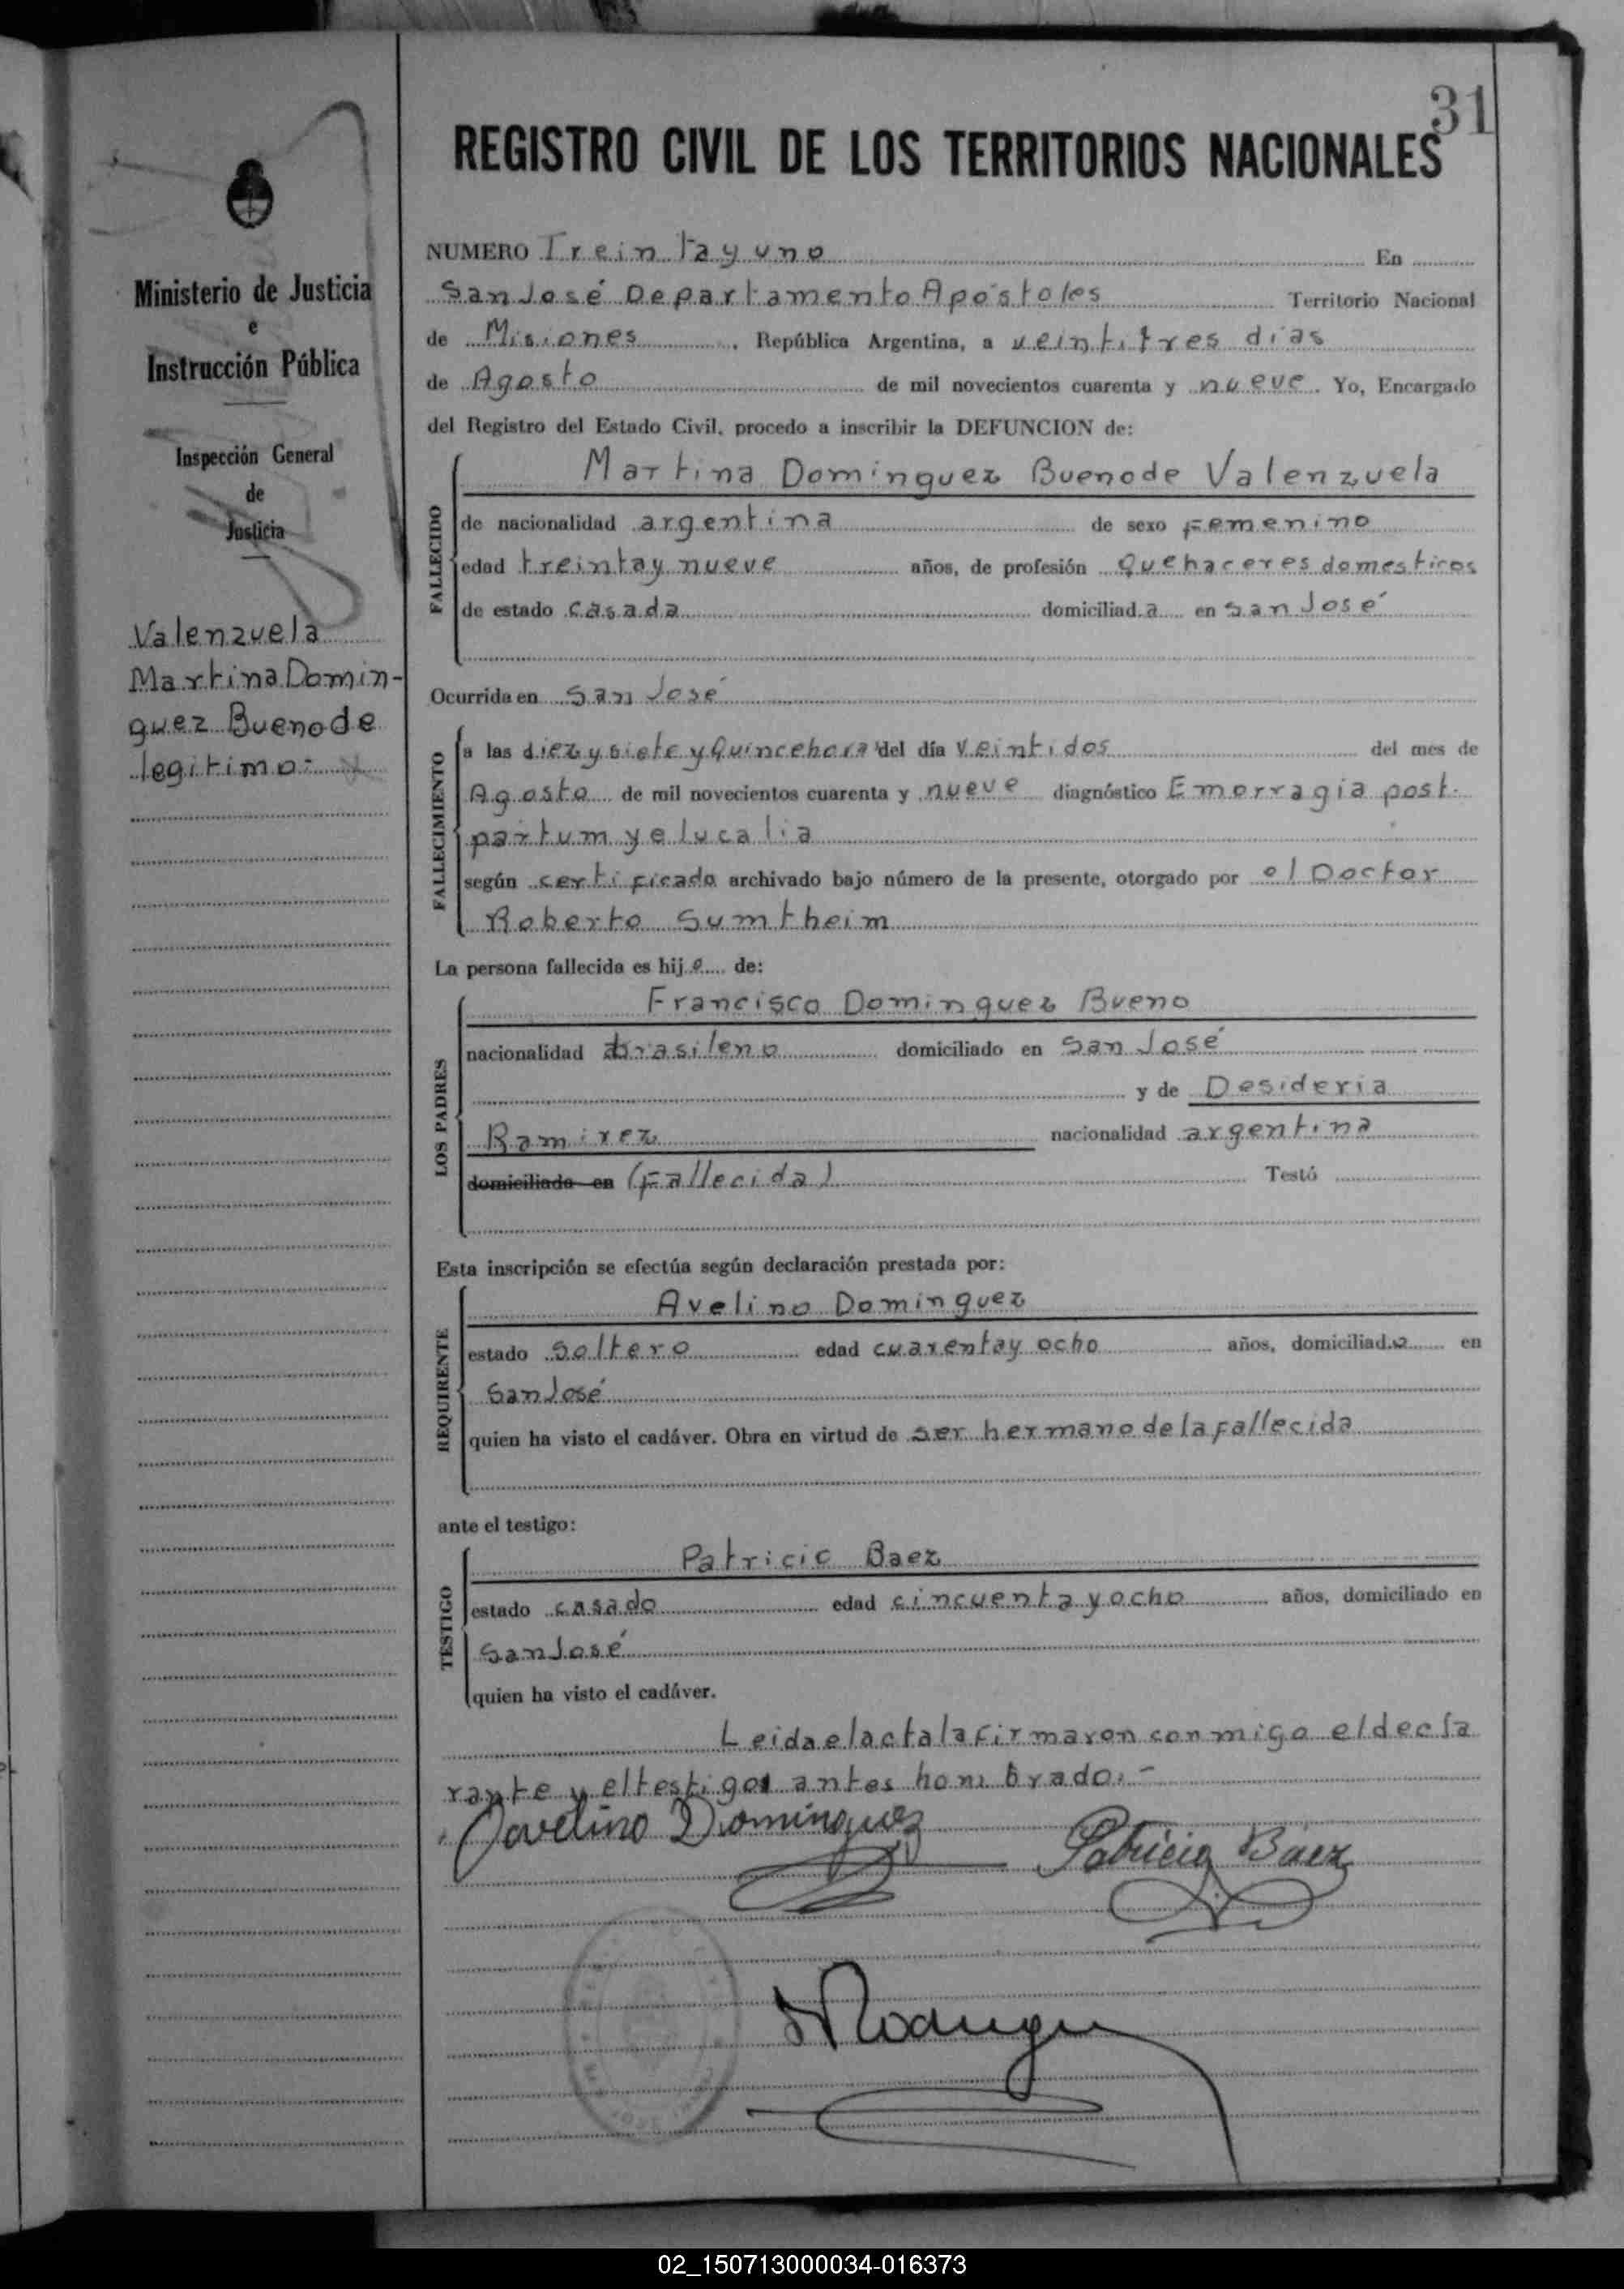 31
REGISTRO CIVIL DE LOS TERRITORIOS NACIONALES
Ministerio de Justicia
e
Instrucción Pública
Inspección General
de
Justicia
Valenzuela
Martina Domin-
guez Bueno de
legitimo-
NUMERO Treinta y uno En
San José Departamento Apóstoles Territorio Nacional
de Misiones, República Argentina, a veintitres dias
de Agosto de mil novecientos cuarenta y nueve. Yo, Encargado
del Registro del Estado Civil, procedo a inscribir la DEFUNCION de:
FALLECIDO
Martina Dominguez Bueno de Valenzuela
de nacionalidad argentina de sexo Femenino
edad treinta y nueve años, de profesión Quehaceres domesticos
de estado casada domiciliada en San José
Ocurrida en San José
FALLECIMIENTO
a las diez y siete y Quince horas del día veintidos del mes de
Agosto de mil novecientos cuarenta y nueve diagnóstico Emorragia post.
partum y elucalia
según certificado archivado bajo número de la presente, otorgado por el Doctor
Roberto Sumtheim
La persona fallecida es hije de:
LOS PADRES
Francisco Dominguez Bueno
nacionalidad brasileno domiciliado en San José
y de Desideria
Ramirez nacionalidad argentina
domiciliada en (Fallecida) Testó
Esta inscripción se efectúa según declaración prestada por:
REQUIRENTE
Avelino Dominguez
estado Soltero edad cuarenta y ocho años, domiciliado en
San José
quien ha visto el cadáver. Obra en virtud de ser hermano de la fallecida
ante el testigo:
TESTIGO
Patricio Baez
estado casado edad cincuenta y ocho años, domiciliado en
San José
quien ha visto el cadáver.
Leida el acta la firmaron conmigo el decla
rante y el testigo antes nombrado.-
Avelino Dominguez
Patricio Báez
02_150713000034-016373